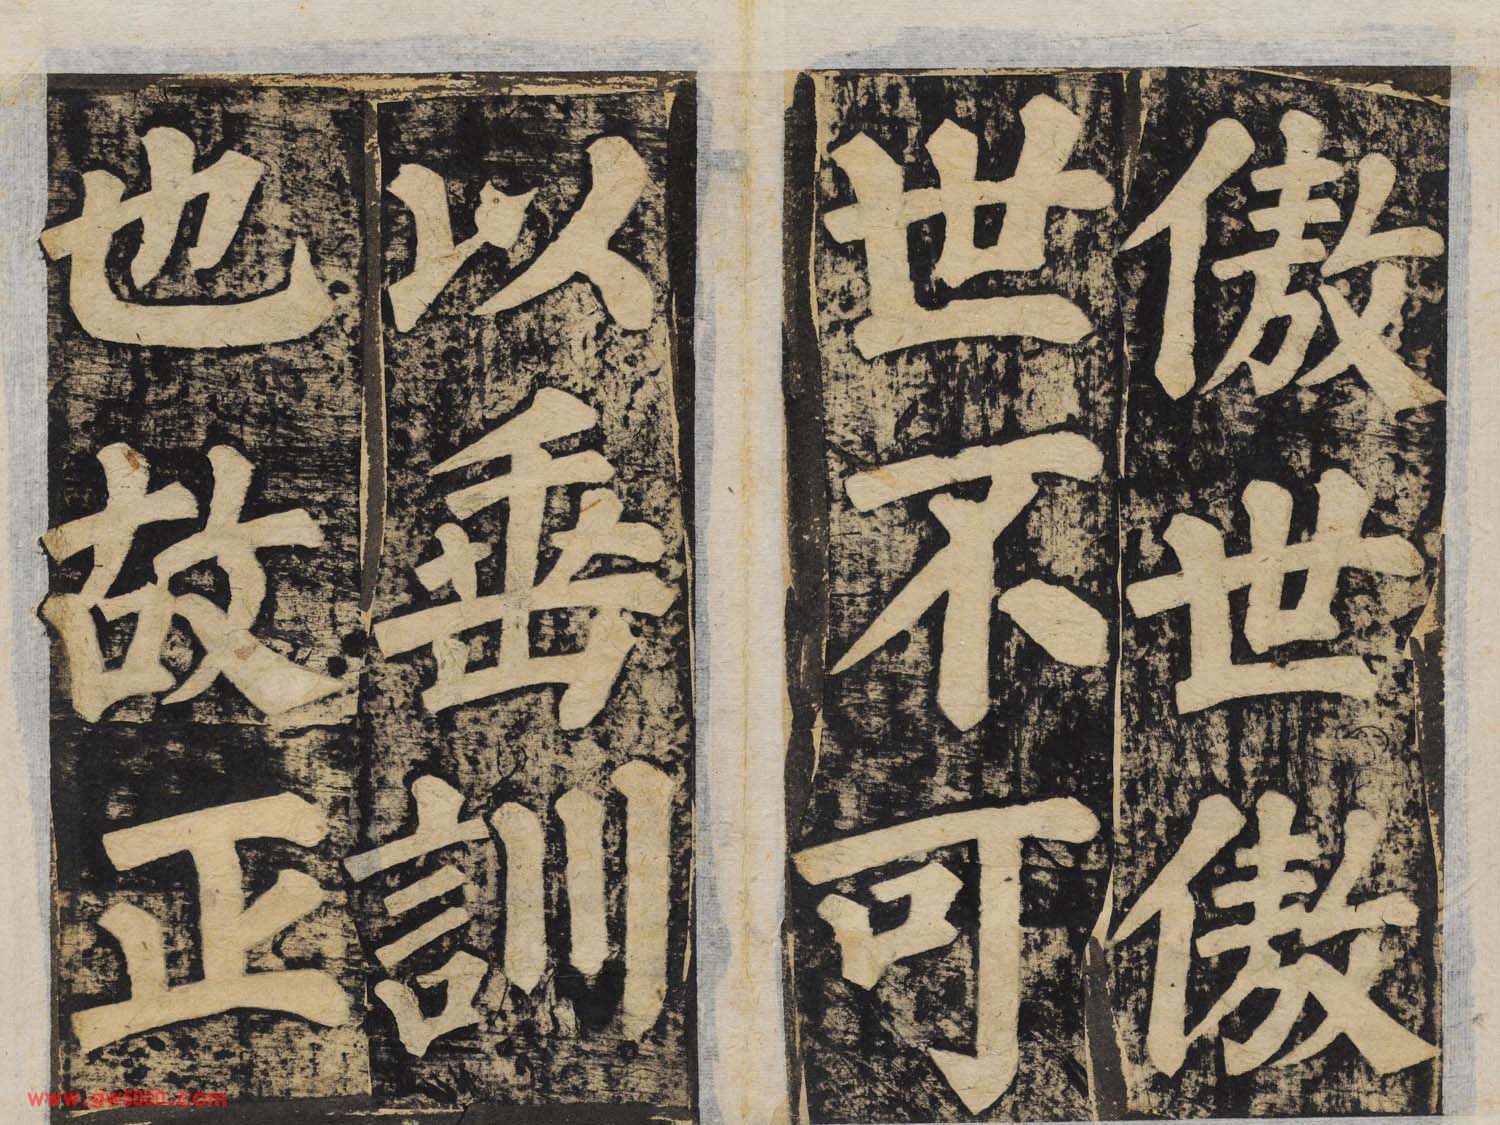 傲世世傲
世不可
以垂訓
也故正
www.gw5000.com